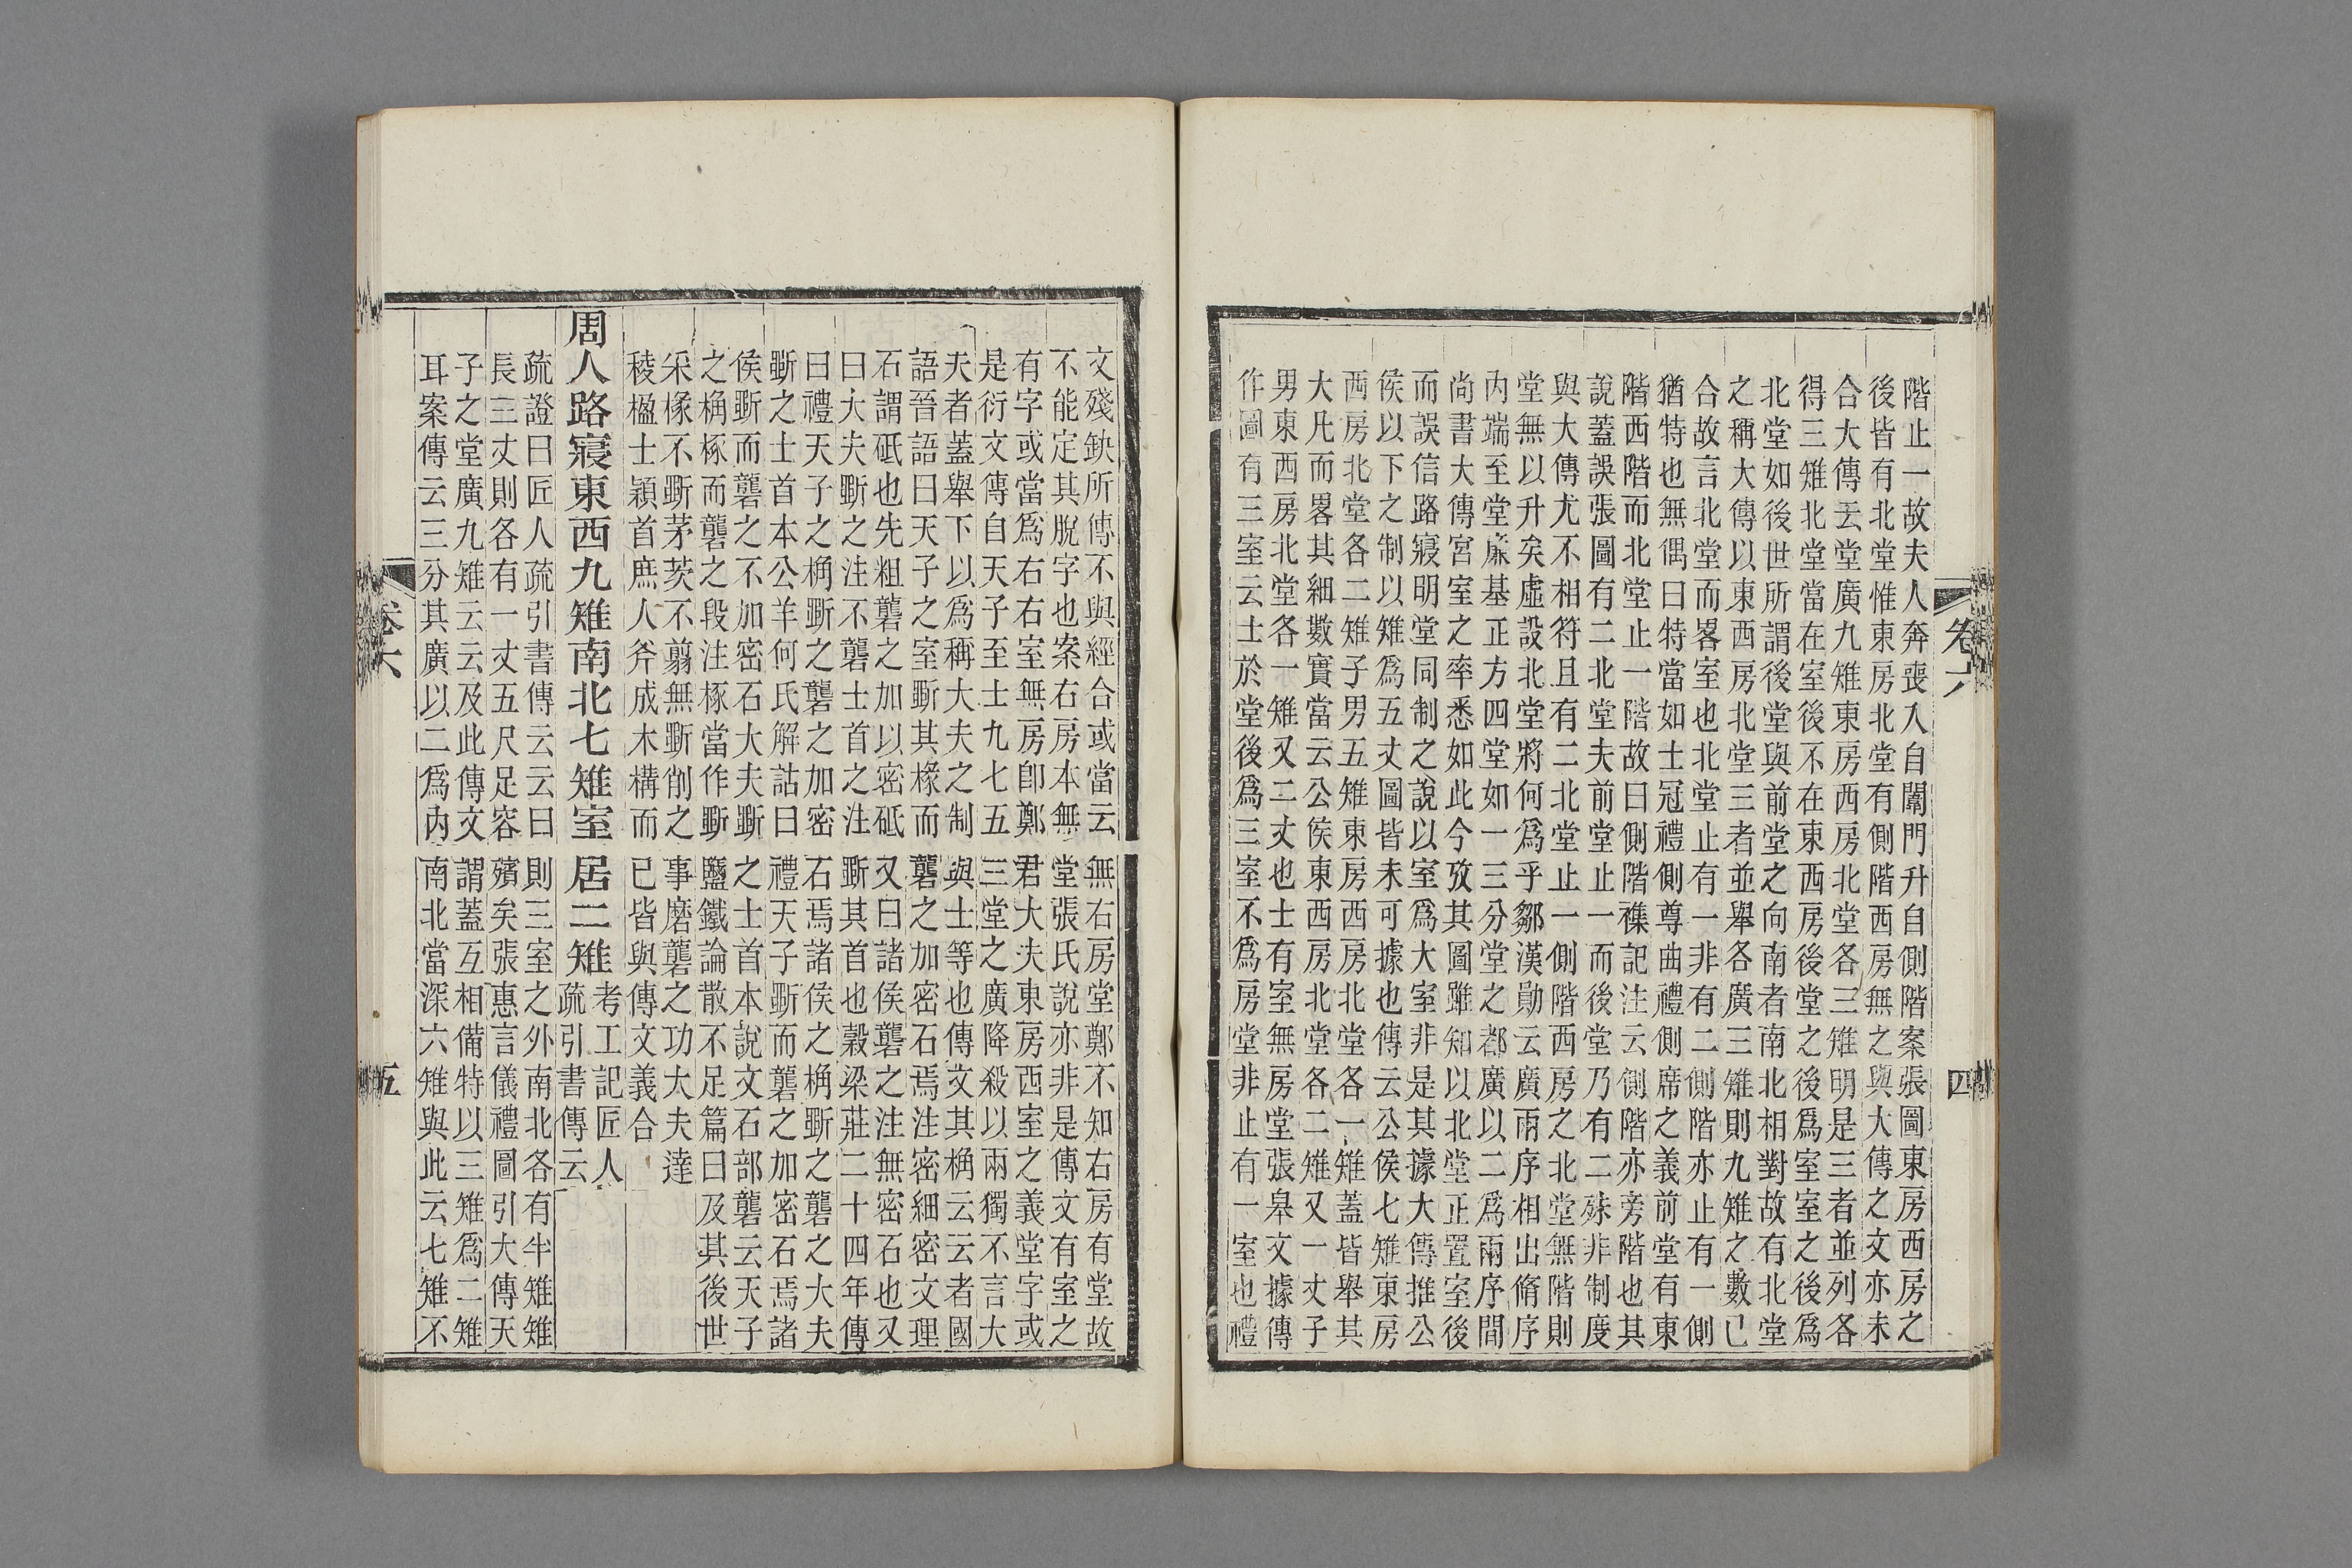 階止一故夫人奔喪入自闈門升自側階案張圖東房西房之
後皆有北堂惟東房北堂有側階西房無之與大傳之文亦未
合大傳云堂廣九雉東房西房北堂各三雉明是三者並列各
得三雉北堂當在室後不在東西房後堂之後爲室室之後爲
北堂如後世所謂後堂與前堂之向南者南北相對故有北堂
之稱大傳以東西房北堂三者並舉各廣三雉則九雉之數已
合故言北堂而畧室也北堂止有一非有二側階亦止有一側
猶特也無偶曰特當如士冠禮側尊曲禮側席之義前堂有東
階西階而北堂止一階故曰側階襍記注云側階亦旁階也其
說蓋誤張圖有二北堂夫前堂止一而後堂乃有二殊非制度
與大傳尤不相符且有二北堂止一側階西房之北堂無階則
堂無以升矣虛設北堂將何爲乎鄒漢勛云廣兩序相出脩序
內端至堂廉基正方四堂如一三分堂之都廣以二爲兩序間
尚書大傳宮室之率悉如此今攷其圖雖知以北堂正置室後
而誤信路寢明堂同制之說以室爲大室非是其據大傳推公
侯以下之制以雉爲五丈圖皆未可據也傳云公侯七雉東房
西房北堂各二雉子男五雉東房西房北堂各一雉蓋皆舉其
大凡而畧其細數實當云公侯東西房北堂各二雉又一丈子
男東西房北堂各一雉又二丈也士有室無房堂張皋文據傳
作圖有三室云士於堂後爲三室不爲房堂非止有一室也禮
卷六
四
文殘缺所傳不與經合或當云無右房堂鄭不知右房有堂故
不能定其脫字也案右房本無堂張氏說亦非是傳文有室之
有字或當爲右右室無房卽鄭君大夫東房西室之義堂字或
是衍文傳自天子至士九七五三堂之廣降殺以兩獨不言大
夫者蓋舉下以爲稱大夫之制與士等也傳文其桷云云者國
語晉語曰天子之室斲其椽而礱之加密石焉注密細密文理
石謂砥也先粗礱之加以密砥又曰諸侯礱之注無密石也又
曰大夫斲之注不礱士首之注斲其首也穀梁莊二十四年傳
曰禮天子之桷斲之礱之加密石焉諸侯之桷斲之礱之大夫
斲之士首本公羊何氏解詁曰禮天子斲而礱之加密石焉諸
侯斲而礱之不加密石大夫斲之士首本說文石部礱云天子
之桷椓而礱之段注椓當作斲鹽鐵論散不足篇曰及其後世
采椽不斲茅茨不翦無斲削之事磨礱之功大夫達
稜楹士穎首庶人斧成木構而已皆與傳文義合
周人路寢東西九雉南北七雉室居二雉考工記匠人
疏引書傳云
疏證曰匠人疏引書傳云云曰則三室之外南北各有半雉雉
長三丈則各有一丈五尺足容殯矣張惠言儀禮圖引大傳天
子之堂廣九雉云云及此傳文謂蓋互相備特以三雉爲二雉
耳案傳云三分其廣以二爲內南北當深六雉與此云七雉不
卷六
五